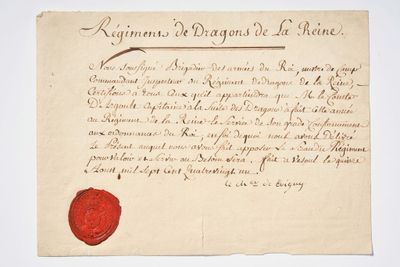 Régiment de Dragons de La Reine.
Nous soussigné Brigadier des armées du Roi, mestre de Camp
Commandant Inspecteur du Régiment de dragons de la Reine,
Certifions à tous Ceux qu'il appartiendra que M. le Comte
D' Capitaine à la Suite des Dragons a fait cette année
au Régiment de la Reine le Service de son grade Conformément
aux ordonnances du Roi, en foi de quoi nous avons délivré
le Présent auquel nous avons fait apposer le Sceau du Régiment
pour valoir et Servir au Besoin Sera. fait à Vesoul le quinze
Aoust mil Sept Cent quatrevingt un.
le Ch.er de